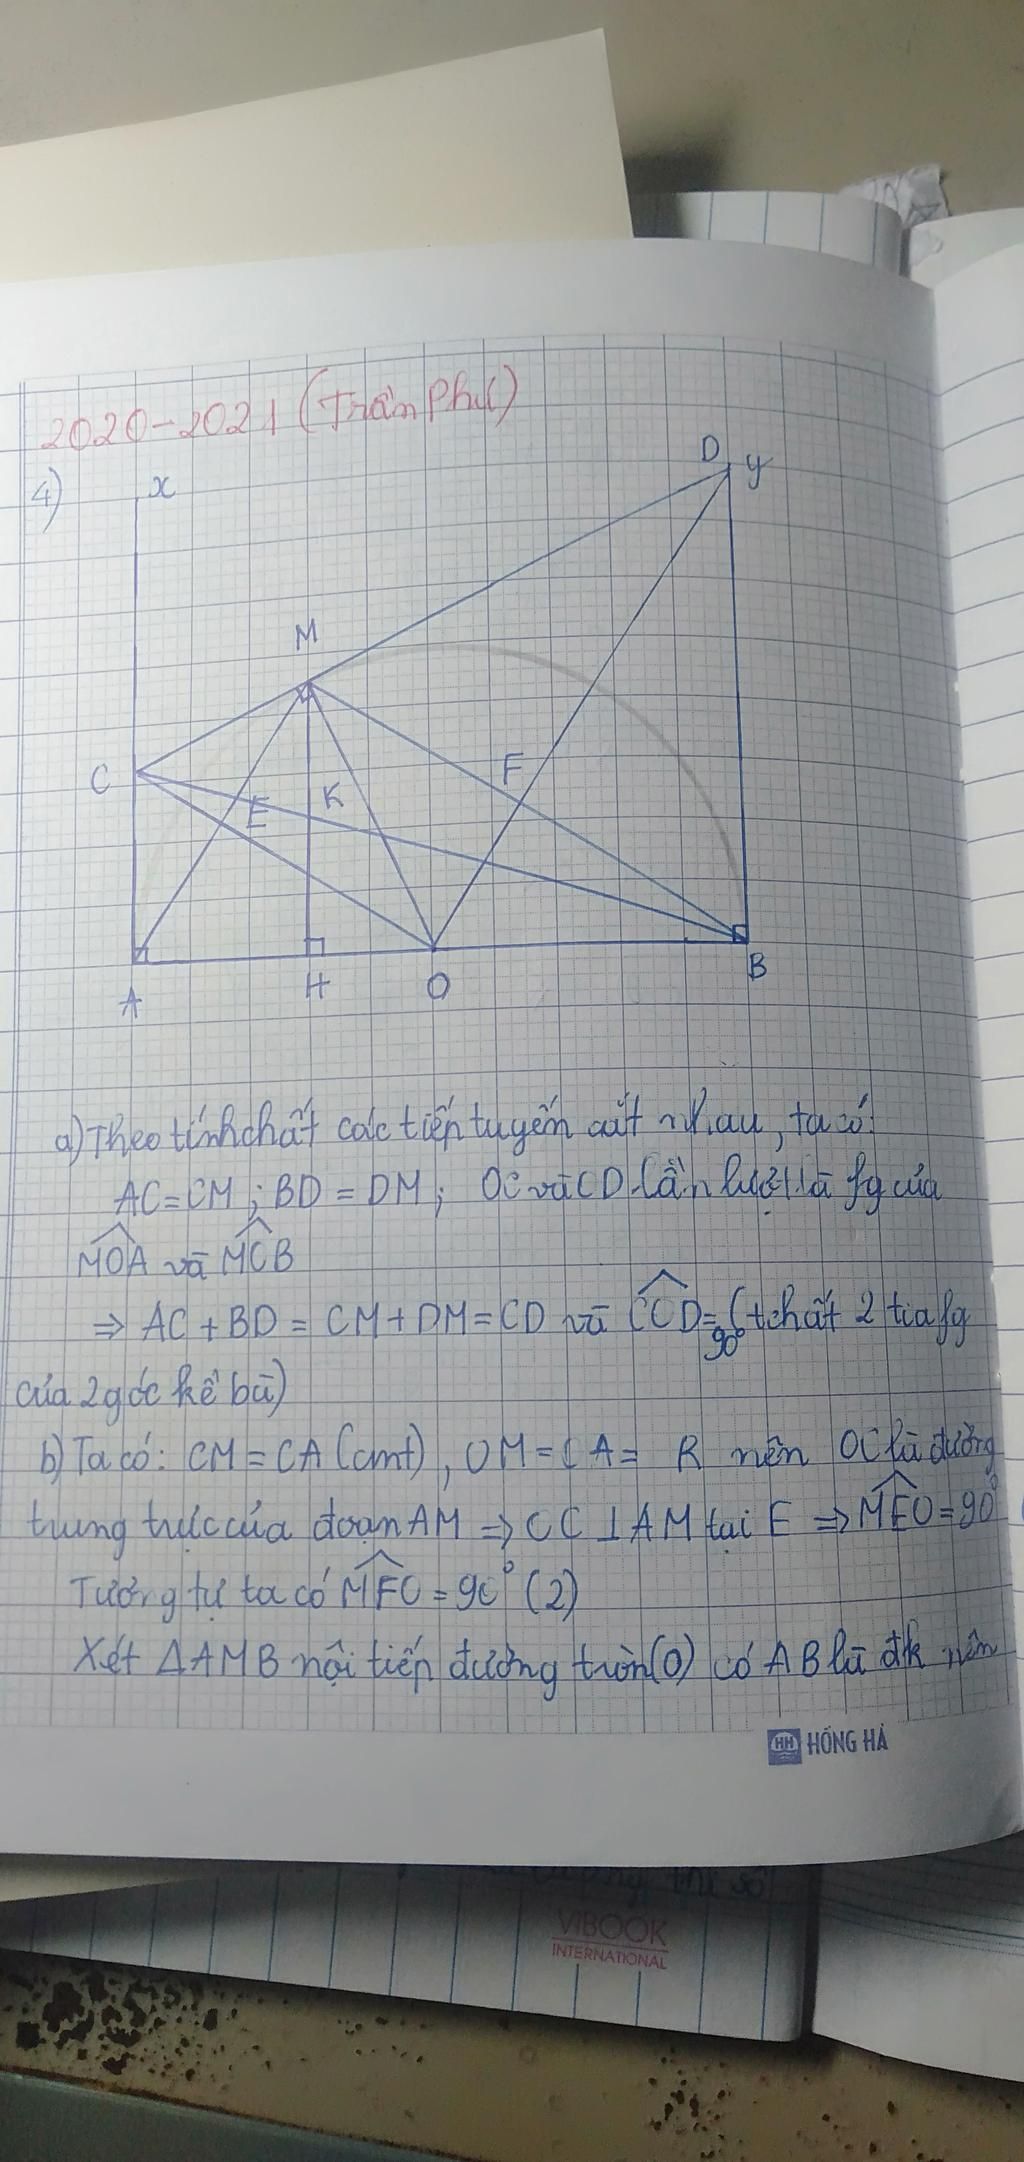 2020-2021 (Trần Phú)
4)
x
D y
M
C
E
K
F
A
H
O
B
a) Theo tính chất các tiếp tuyến cắt nhau, ta có:
AC = CM ; BD = DM ; OC và OD lần lượt là fg của
MOA và MOB
⇒ AC + BD = CM + DM = CD và COD = 90° (tchất 2 tia fg
của 2 góc kề bù)
b) Ta có: CM = CA (cmt), OM = OA = R nên OC là đường
trung trực của đoạn AM ⇒ OC ⊥ AM tại E ⇒ MEO = 90°
Tương tự ta có MFO = 90° (2)
Xét ΔAMB nội tiếp đường tròn (O) có AB là đk nên
HH HỒNG HÀ
thi số
ViBOOK
INTERNATIONAL